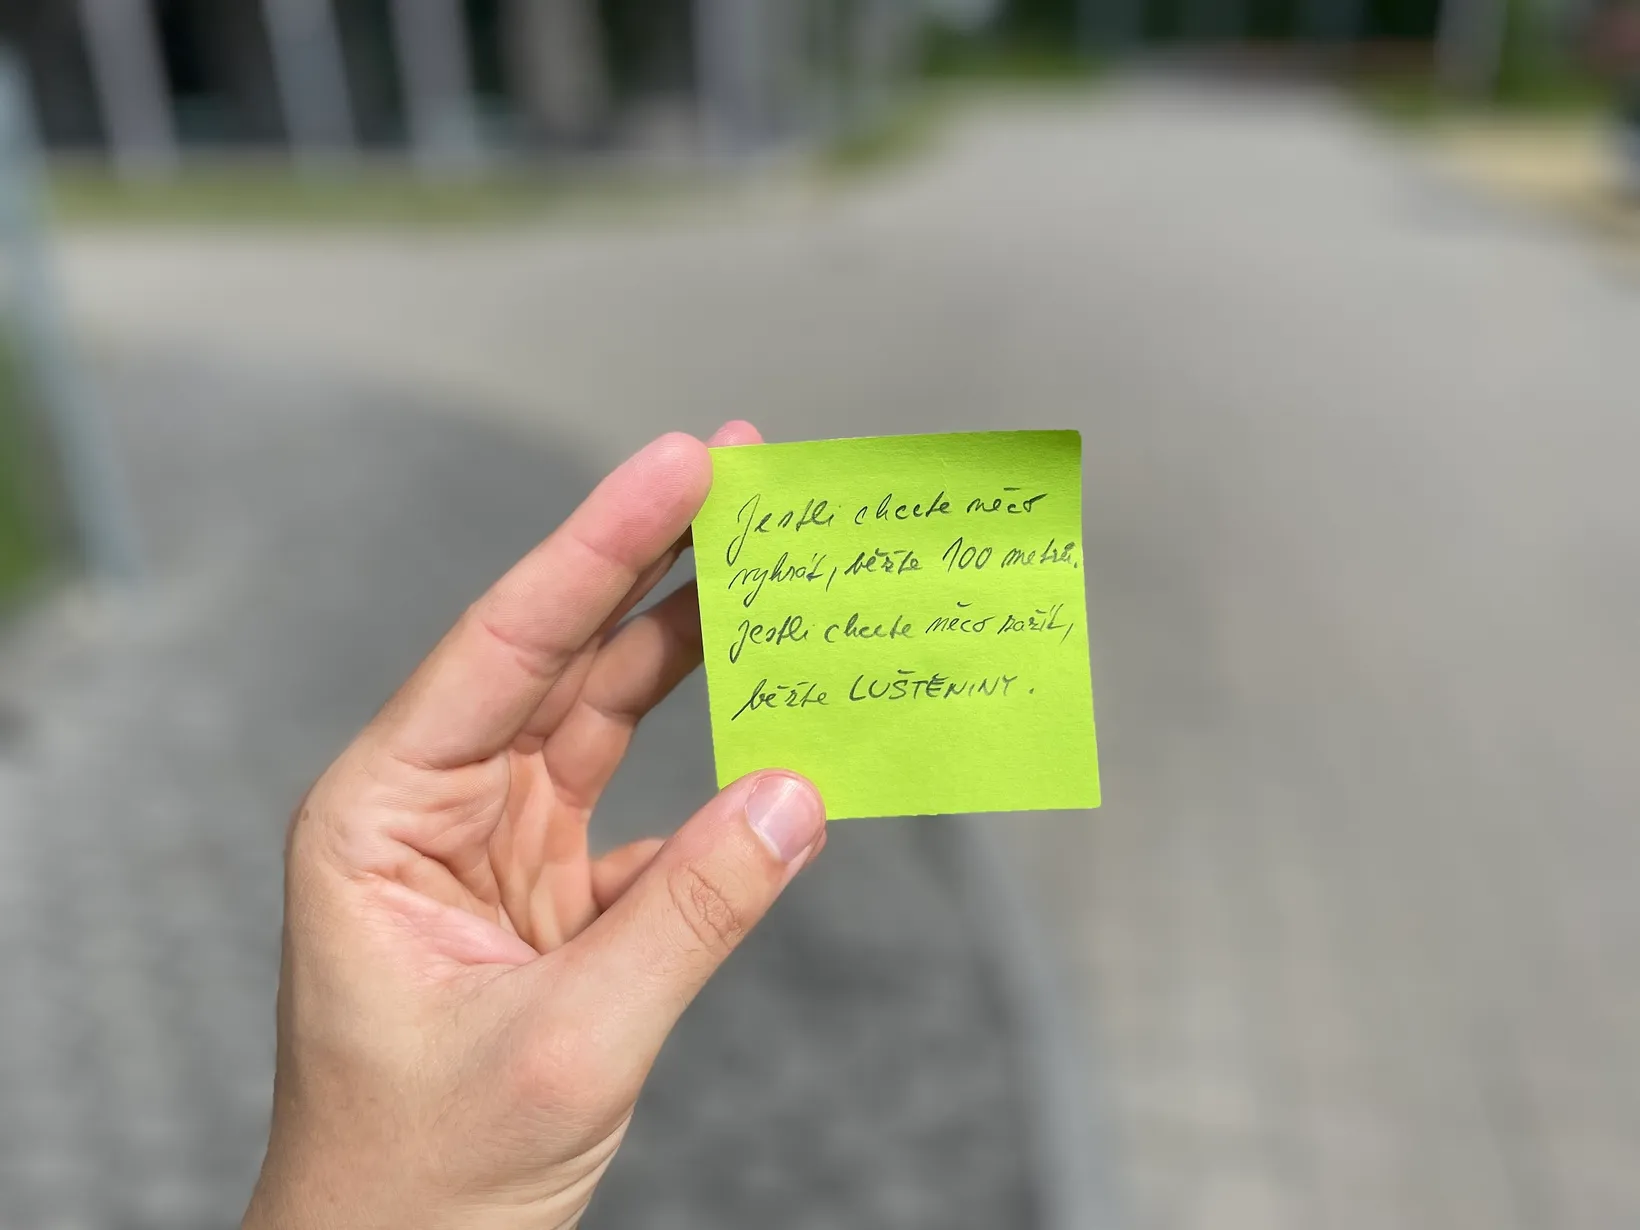 Jestli chcete něco
vyhrát, běžte 100 metrů.
Jestli chcete něco zažít,
běžte LUŠTĚNINY.